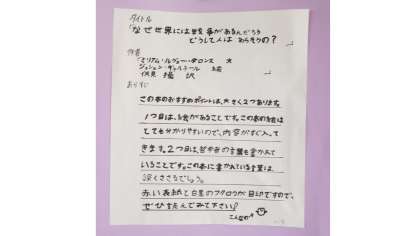 タイトル
なぜ世界には戦争があるんだろう
どうして人はあらそうの?
作者
ミリアム・ルヴォー・ダロンヌ 文
ジョシェン・ギャルネール 絵
伏見 操 訳
あらすじ
この本のおすすめポイントは、大きく2つあります。
1つ目は、絵があることです。この本の絵は
とても分かりやすいので、内容がすぐ入って
きます。2つ目は哲学者の言葉も書かれて
いることです。この本に書かれている言葉は
深くささるでしょう。
赤い表紙と白黒のフクロウが目印ですので、
ぜひ読んでみて下さい!
こんなの